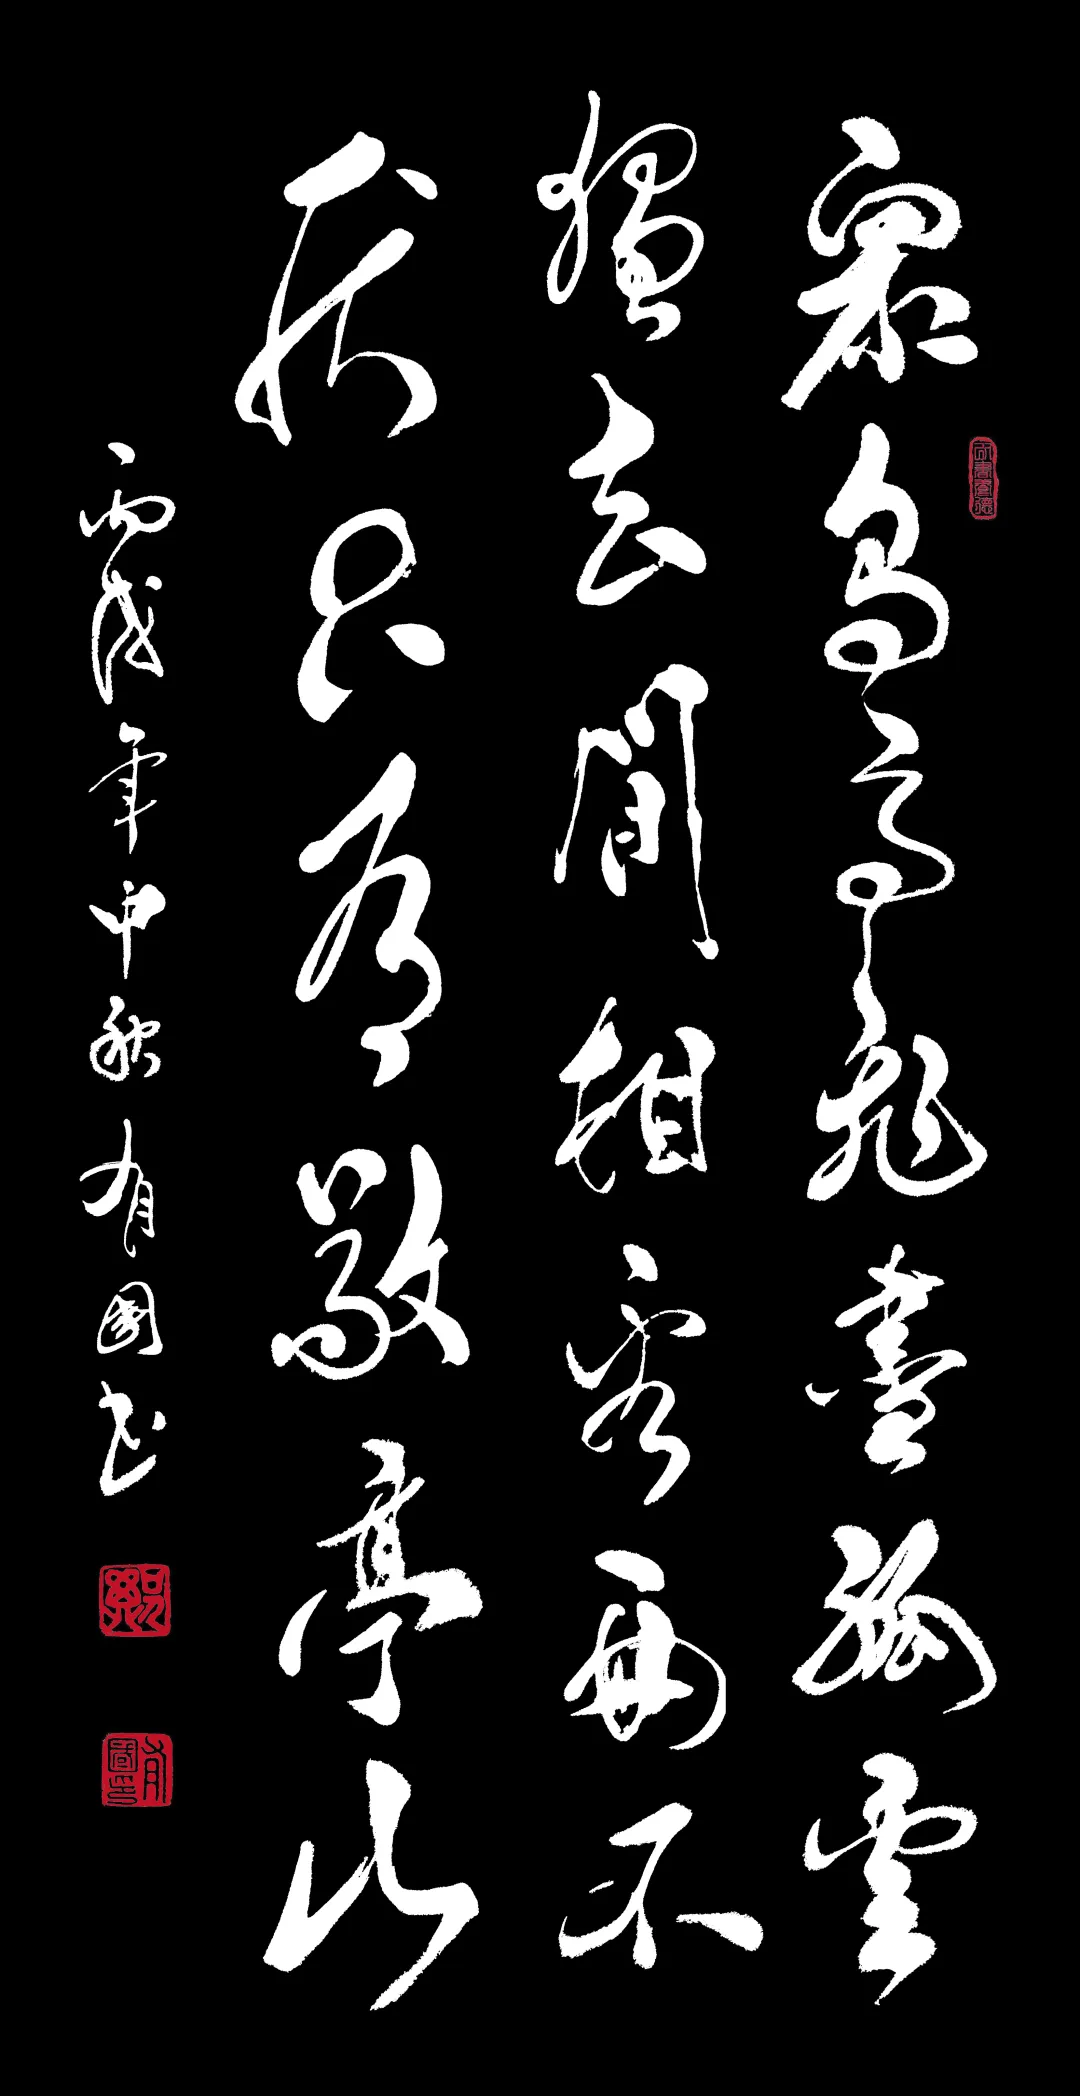 眾鳥高飛盡孤雲
獨去閒相看兩不
厭只有敬亭山
丙戌年中秋有國書
有國印